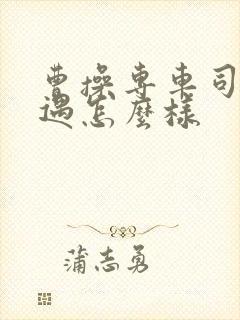 曹操专车司
遇怎麼樣
蒲志勇